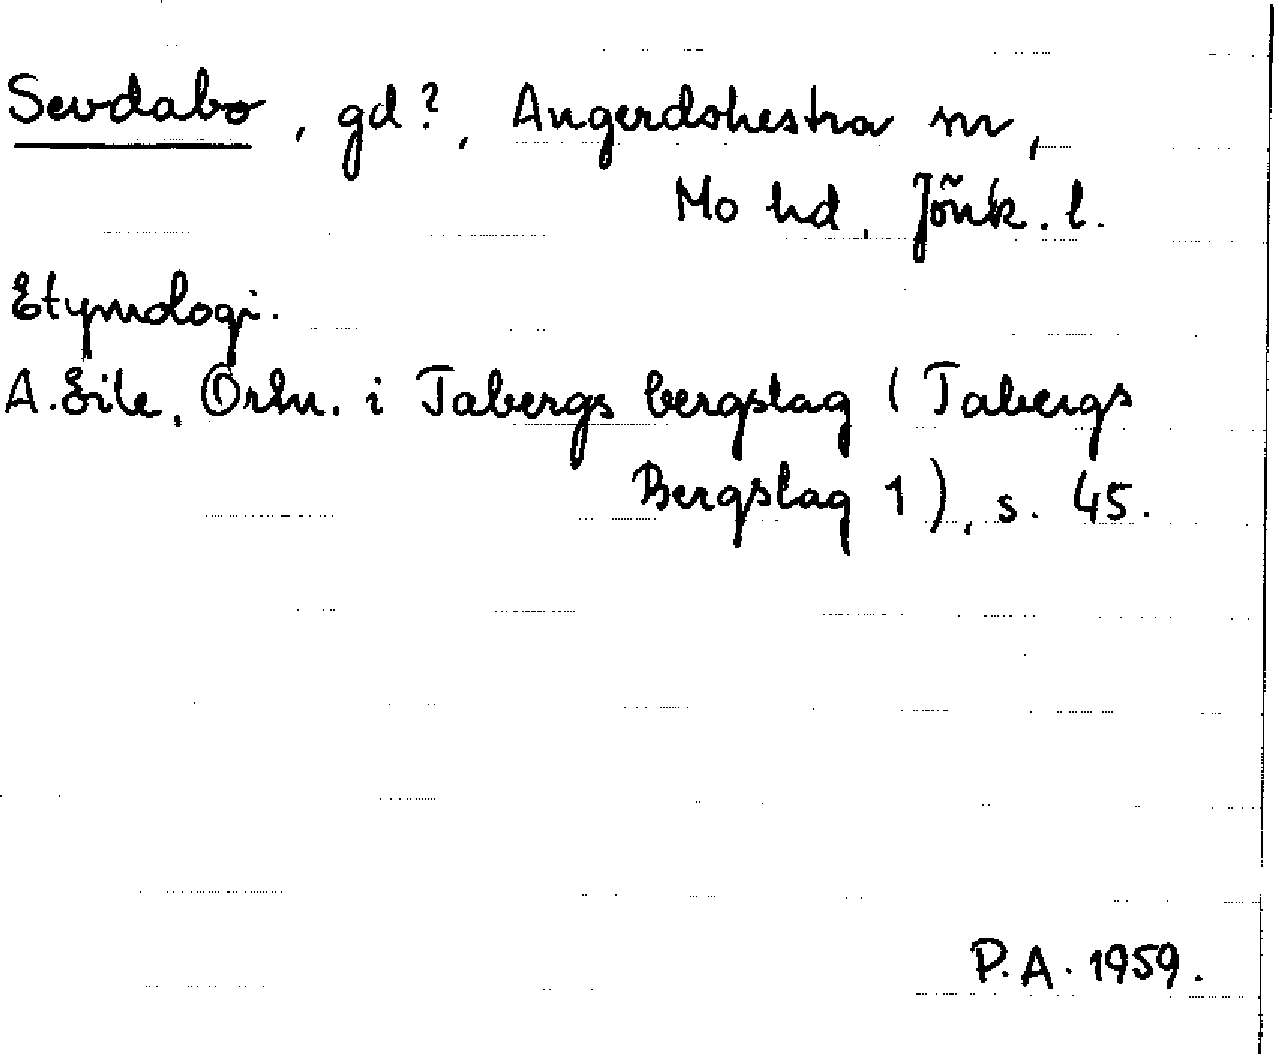 Sevdabo, gd?, Angerdshestra sn,
Mo hd, Jönk. l.
Etymologi.
A. Eile, Ortn. i Tabergs bergslag (Tabergs
Bergslag 1), s. 45.
P.A. 1959.